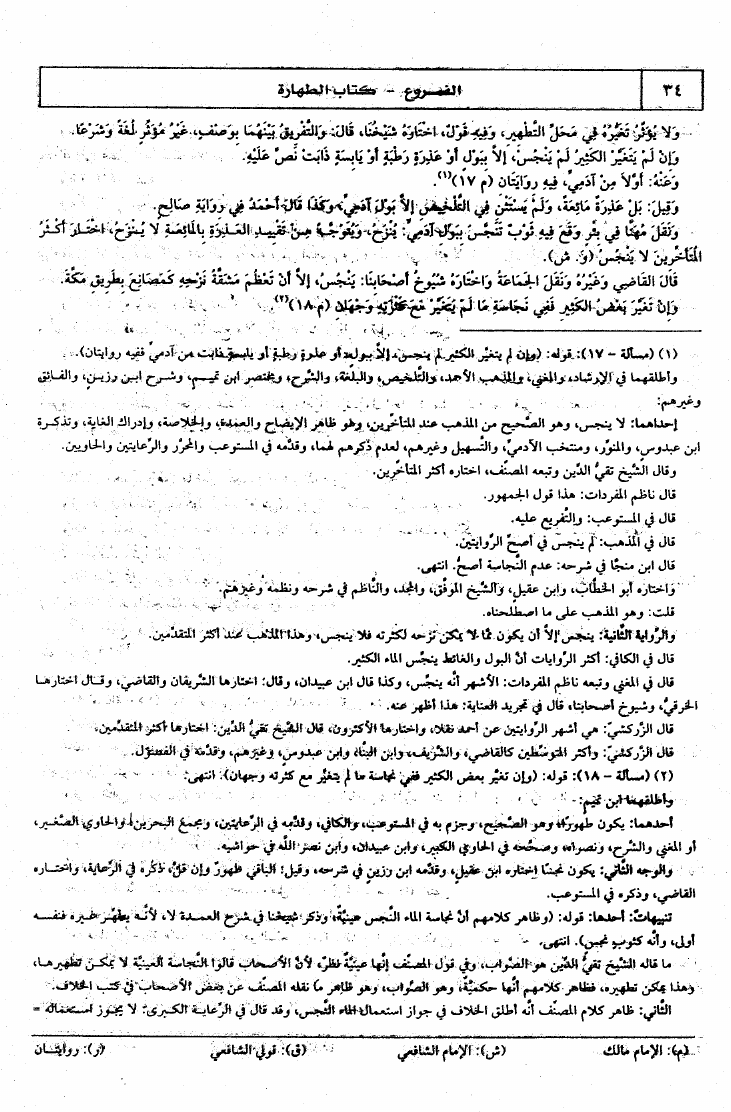 ٣٤
الفروع - كتاب الطهارة
وَلا يُؤَثِّرُ تَغَيُّرُهُ فِي مَحَلِّ التَّطْهِيرِ، وَفِيهِ قَوْلٌ، اخْتَارَهُ شَيْخُنَا، قَالَ: وَالتَّفْرِيقُ بَيْنَهُمَا بِوَصْفٍ، غَيْرُ مُؤَثِّرٍ لُغَةً وَشَرْعًا.
وَإِنْ لَمْ يَتَغَيَّرْ الْكَثِيرُ لَمْ يَنْجُسْ، إلاَّ بِبَوْلٍ أَوْ عَذِرَةٍ رَطْبَةٍ أَوْ يَابِسَةٍ ذَابَتْ نَصَّ عَلَيْهِ.
وَعَنْهُ: أَوَّلاً مِنْ آدَمِيٍّ، فِيهِ رِوَايَتَانِ (م ١٧)(١).
وَقِيلَ: بَلْ عَذِرَةٌ مَائِعَةٌ، وَلَمْ يَسْتَثْنِ فِي التَّلْخِيصِ إلاَّ بَوْلَ آدَمِيٍّ، وَكَذَا قَالَ أَحْمَدُ فِي رِوَايَةِ صَالِحٍ.
وَنَقَلَ مُهَنَّا فِي بِئْرٍ وَقَعَ فِيهِ ثَوْبٌ تَنَجَّسَ بِبَوْلِ آدَمِيٍّ: يُنْزَحُ، وَيَتَوَجَّهُ مِنْ تَقْيِيدِ الْعَذِرَةِ بِالْمَائِعَةِ لا يُنْزَحُ، اخْتَارَ أَكْثَرُ
الْمُتَأَخِّرِينَ لا يَنْجُسُ (وَ. ش).
قَالَ الْقَاضِي وَغَيْرُهُ وَنَقَلَ الْجَمَاعَةُ وَاخْتَارَهُ شُيُوخُ أَصْحَابِنَا: يَنْجُسُ، إلاَّ أَنْ تَعْظُمَ مَشَقَّةُ نَزْحِهِ كَمَصَانِعَ بِطَرِيقِ مَكَّةَ.
وَإِنْ تَغَيَّرَ بَعْضُ الْكَثِيرِ فَفِي نَجَاسَةِ مَا لَمْ يَتَغَيَّرْ مَعَ كَثْرَتِهِ وَجْهَانِ (م ١٨)(٢).
(١) (مسألة - ١٧): قوله: (وإن لم يتغير الكثير لم ينجس، إلا ببول أو عذرة رطبة أو يابسة ذابت من آدميّ ففيه روايتان).
وأطلقهما في الإرشاد، والمغني، والمذهب الأحمد، والتلخيص، والبلغة، والشرح، ومختصر ابن تميم، وشرح ابن رزين، والفائق
وغيرهم:
إحداهما: لا ينجس، وهو الصّحيح من المذهب عند المتأخّرين، وهو ظاهر الإيضاح والعمدة، والخلاصة، وإدراك الغاية، وتذكرة
ابن عبدوس، والمنوّر، ومنتخب الآدميّ، والتّسهيل وغيرهم، لعدم ذكرهم لهما، وقدّمه في المستوعب والمحرّر والرّعايتين والحاويين.
وقال الشّيخ تقيّ الدّين وتبعه المصنّف، اختاره أكثر المتأخّرين.
قال ناظم المفردات: هذا قول الجمهور.
قال في المستوعب: والتّفريع عليه.
قال في المذهب: لم ينجس في أصحّ الرّوايتين.
قال ابن منجّا في شرحه: عدم النّجاسة أصحّ. انتهى.
واختاره أبو الخطّاب، وابن عقيل، والشّيخ الموفّق، والمجد، والنّاظم في شرحه ونظمه وغيرهم.
قلت: وهو المذهب على ما اصطلحناه.
والرّواية الثّانية: ينجس إلاّ أن يكون ممّا لا يمكن نزحه لكثرته فلا ينجس، وهذا المذهب عند أكثر المتقدّمين.
قال في الكافي: أكثر الرّوايات أنّ البول والغائط ينجّس الماء الكثير.
قال في المغني وتبعه ناظم المفردات: الأشهر أنّه ينجّس، وكذا قال ابن عبيدان، وقال: اختارها الشّريفان والقاضي، وقال اختارها
الخرقيّ، وشيوخ أصحابنا، قال في تجريد العناية: هذا أظهر عنه.
قال الزّركشيّ: هي أشهر الرّوايتين عن أحمد نقلا، واختارها الأكثرون، قال الشّيخ تقيّ الدّين: اختارها أكثر المتقدّمين.
قال الزّركشيّ: وأكثر المتوسّطين كالقاضي، والشّريف، وابن البنّا، وابن عبدوس، وغيرهم، وقدّمه في الفصول.
(٢) (مسألة - ١٨): قوله: (وإن تغيّر بعض الكثير ففي نجاسة ما لم يتغيّر مع كثرته وجهان). انتهى:
وأطلقهما ابن تميم:
أحدهما: يكون طهورا، وهو الصّحيح، وجزم به في المستوعب، والكافي، وقدّمه في الرّعايتين، ومجمع البحرين، والحاوي الصّغير،
أو المغني والشّرح، ونصراه، وصحّحه في الحاوي الكبير، وابن عبيدان، وابن نصر الله في حواشيه.
والوجه الثّاني: يكون نجسًا اختاره ابن عقيل، وقدّمه ابن رزين في شرحه، وقيل: الباقي طهورٌ وإن قلّ، ذكره في الرّعاية، واختاره
القاضي، وذكره في المستوعب.
تنبيهاتٌ: أحدها: قوله: (وظاهر كلامهم أنّ نجاسة الماء النّجس عينيّة، وذكر شيخنا في شرح العمدة لا، لأنّه يطهّر غيره فنفسه
أولى، وأنّه كثوب نجس). انتهى.
ما قاله الشّيخ تقيّ الدّين هو الصّواب، وفي قول المصنّف إنّها عينيّة نظرٌ، لأنّ الأصحاب قالوا النّجاسة العينيّة لا يمكن تطهيرها،
وهذا يمكن تطهيره، فظاهر كلامهم أنّها حكميّة، وهو الصّواب، وهو ظاهر ما نقله المصنّف عن بعض الأصحاب في كتب الخلاف.
الثّاني: ظاهر كلام المصنّف أنّه أطلق الخلاف في جواز استعمال الماء النّجس، وقد قال في الرّعاية الكبرى: لا يجوز استعماله =
(م): الإمام مالك (ش): الإمام الشافعي (ق): قولي الشافعي (ر): روايتان